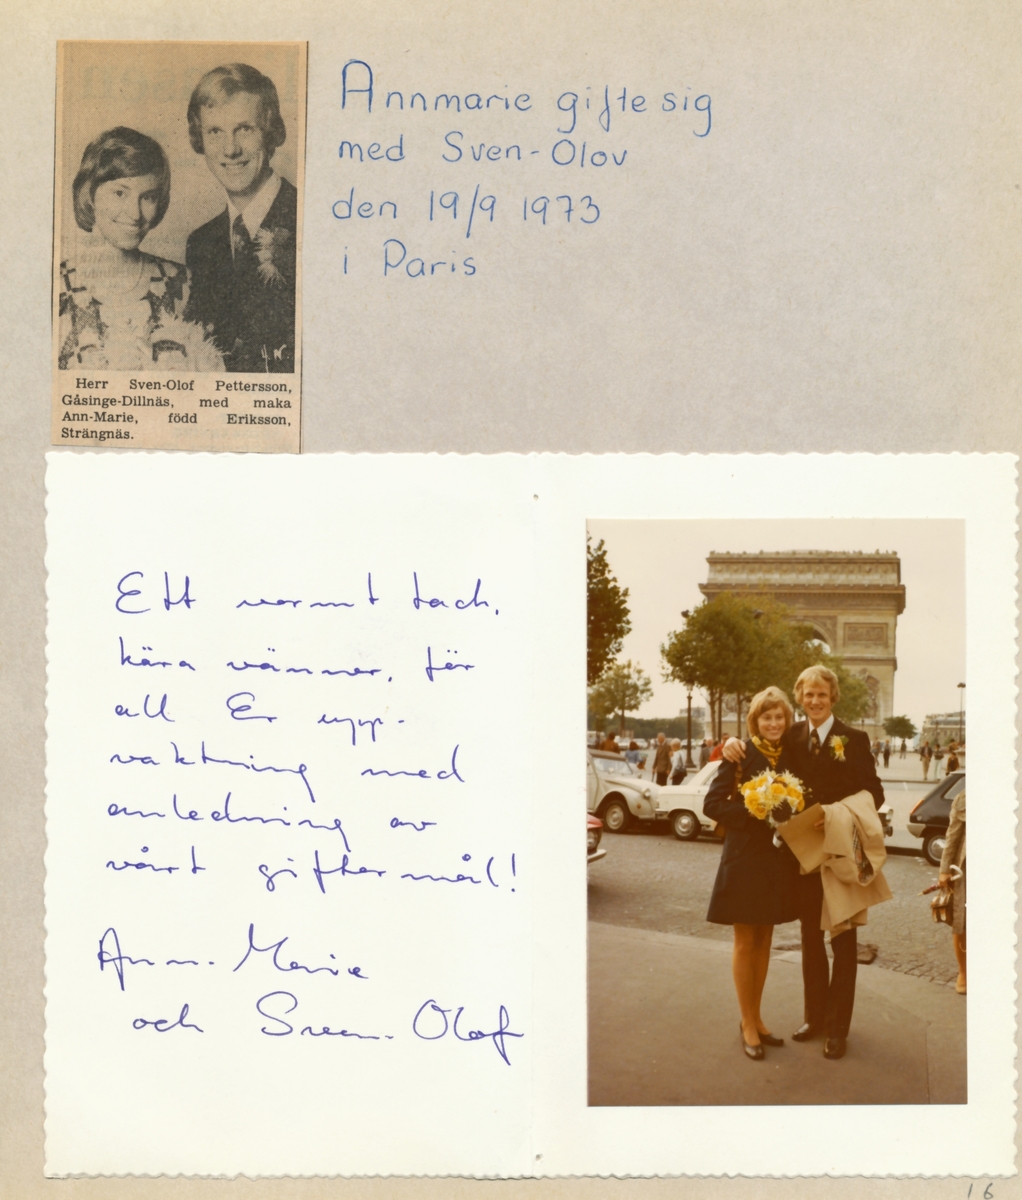 Annmarie gifte sig
med Sven-Olov
den 19/9 1973
i Paris
Herr Sven-Olof Pettersson,
Gåsinge-Dillnäs, med maka
Ann-Marie, född Eriksson,
Strängnäs.
Ett varmt tack,
kära vänner, för
all Er upp-
vaktning med
anledning av
vårt giftermål!
Ann-Marie
och Sven-Olof
16